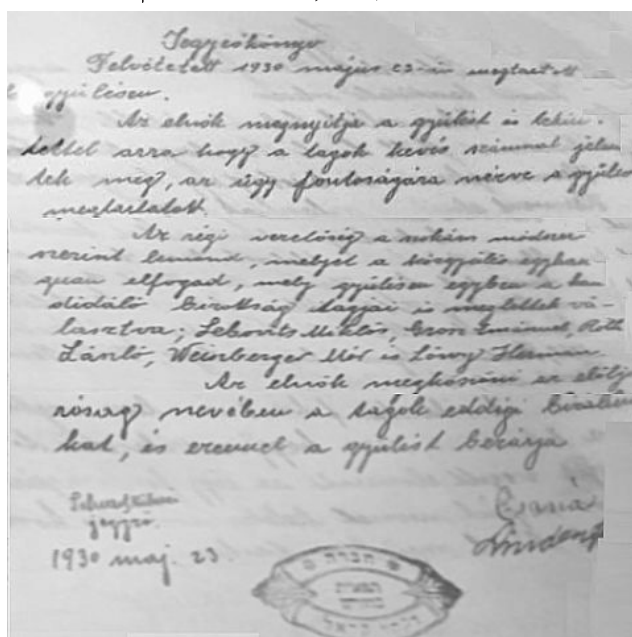 Jegyzőkönyv
Felvétetett 1930 május 23-án megtartott
gyűlésen.
Az elnök megnyitja a gyűlést és tekin-
tettel arra hogy a tagok kevés számmal jelen
tek meg, az ügy fontoságára nézve a gyűlés
megtartatott.
Az régi vezetőség a szokásos módszer
szerint lemond, melyet a közgyűlés egyhan
guan elfogad, mely gyűlésen egyben a kan
didáló bizottság tagjai is meglettek vá-
lasztva; Lebovits Miklós, Grosz Emánuel, Róth
László, Weinberger Mór és Löwy Herman
Az elnök megköszöni az elölj
róság nevében a tagok eddigi bizalm
kat, és ezennel a gyűlést bezárja
jegyző.
1930 maj. 23
חברה